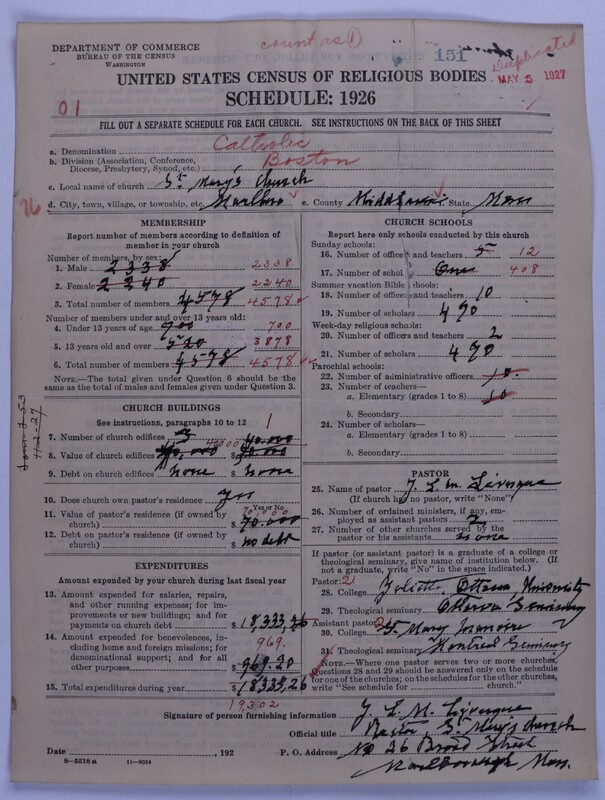 DEPARTMENT OF COMMERCE
BUREAU OF THE CENSUS
WASHINGTON
count as 1
151
Duplicated
MAY 5 1927
UNITED STATES CENSUS OF RELIGIOUS BODIES
SCHEDULE: 1926
01
FILL OUT A SEPARATE SCHEDULE FOR EACH CHURCH. SEE INSTRUCTIONS ON THE BACK OF THIS SHEET
a. Denomination Catholic
b. Division (Association, Conference, Diocese, Presbytery, Synod, etc.) Boston
c. Local name of church St Mary's Church
d. City, town, village, or township, etc. Marlboro e. County Middlesex State Mass
MEMBERSHIP
Report number of members according to definition of member in your church
Number of members, by sex:
1. Male 2338 2338
2. Female 2240 2240
3. Total number of members 4578 4578
Number of members under and over 13 years old:
4. Under 13 years of age 700 700
5. 13 years old and over 3878
6. Total number of members 4578 4578
NOTE.—The total given under Question 6 should be the same as the total of males and females given under Question 3.
CHURCH BUILDINGS
See instructions, paragraphs 10 to 12 1
7. Number of church edifices 3
8. Value of church edifices
9. Debt on church edifices none none
10. Does church own pastor's residence? yes
Yes or No
11. Value of pastor's residence (if owned by church) $ 70.000
12. Debt on pastor's residence (if owned by church) $ no debt
EXPENDITURES
Amount expended by your church during last fiscal year
13. Amount expended for salaries, repairs, and other running expenses; for improvements or new buildings; and for payments on church debt $ 18,333,26
14. Amount expended for benevolences, including home and foreign missions; for denominational support; and for all other purposes. $ 969.20
969.
15. Total expenditures during year $ 18,333,26
19,302
CHURCH SCHOOLS
Report here only schools conducted by this church
Sunday schools:
16. Number of officers and teachers 5 12
17. Number of scholars One 408
Summer vacation Bible schools:
18. Number of officers and teachers 10
19. Number of scholars 490
Week-day religious schools:
20. Number of officers and teachers 2
21. Number of scholars 490
Parochial schools:
22. Number of administrative officers 10
23. Number of teachers—
a. Elementary (grades 1 to 8) 10
b. Secondary
24. Number of scholars—
a. Elementary (grades 1 to 8)
b. Secondary
PASTOR
25. Name of pastor J. L. M. Lévesque
(If church has no pastor, write "None")
26. Number of ordained ministers, if any, employed as assistant pastors 2
27. Number of other churches served by the pastor or his assistants none
If pastor (or assistant pastor) is a graduate of a college or theological seminary, give name of institution below. (If not a graduate, write "No" in the space indicated.)
Pastor: 21
28. College Joliette, Ottawa, University
29. Theological seminary Ottawa Seminary
Assistant pastor: 2
30. College St. Mary
31. Theological seminary Montreal Seminary
NOTE.—Where one pastor serves two or more churches, Questions 28 and 29 should be answered only on the schedule for one of the churches; on the schedules for the other churches, write "See schedule for church."
Signature of person furnishing information J. L. M. Lévesque
Official title Pastor, St Mary's Church
Date , 192 P. O. Address No 26 Broad Street
Marlborough Mass.
8—5518a 11—9034